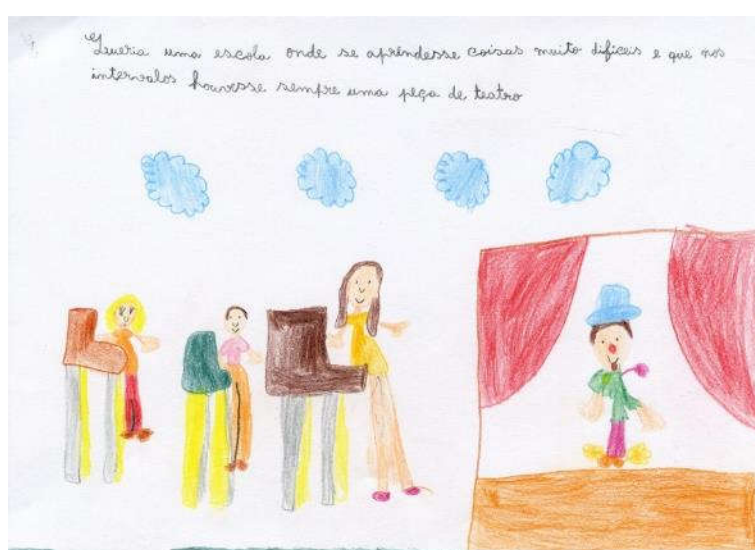 Queria uma escola onde se aprendesse coisas muito dificeis e que nos
intervalos houvesse sempre uma peça de teatro